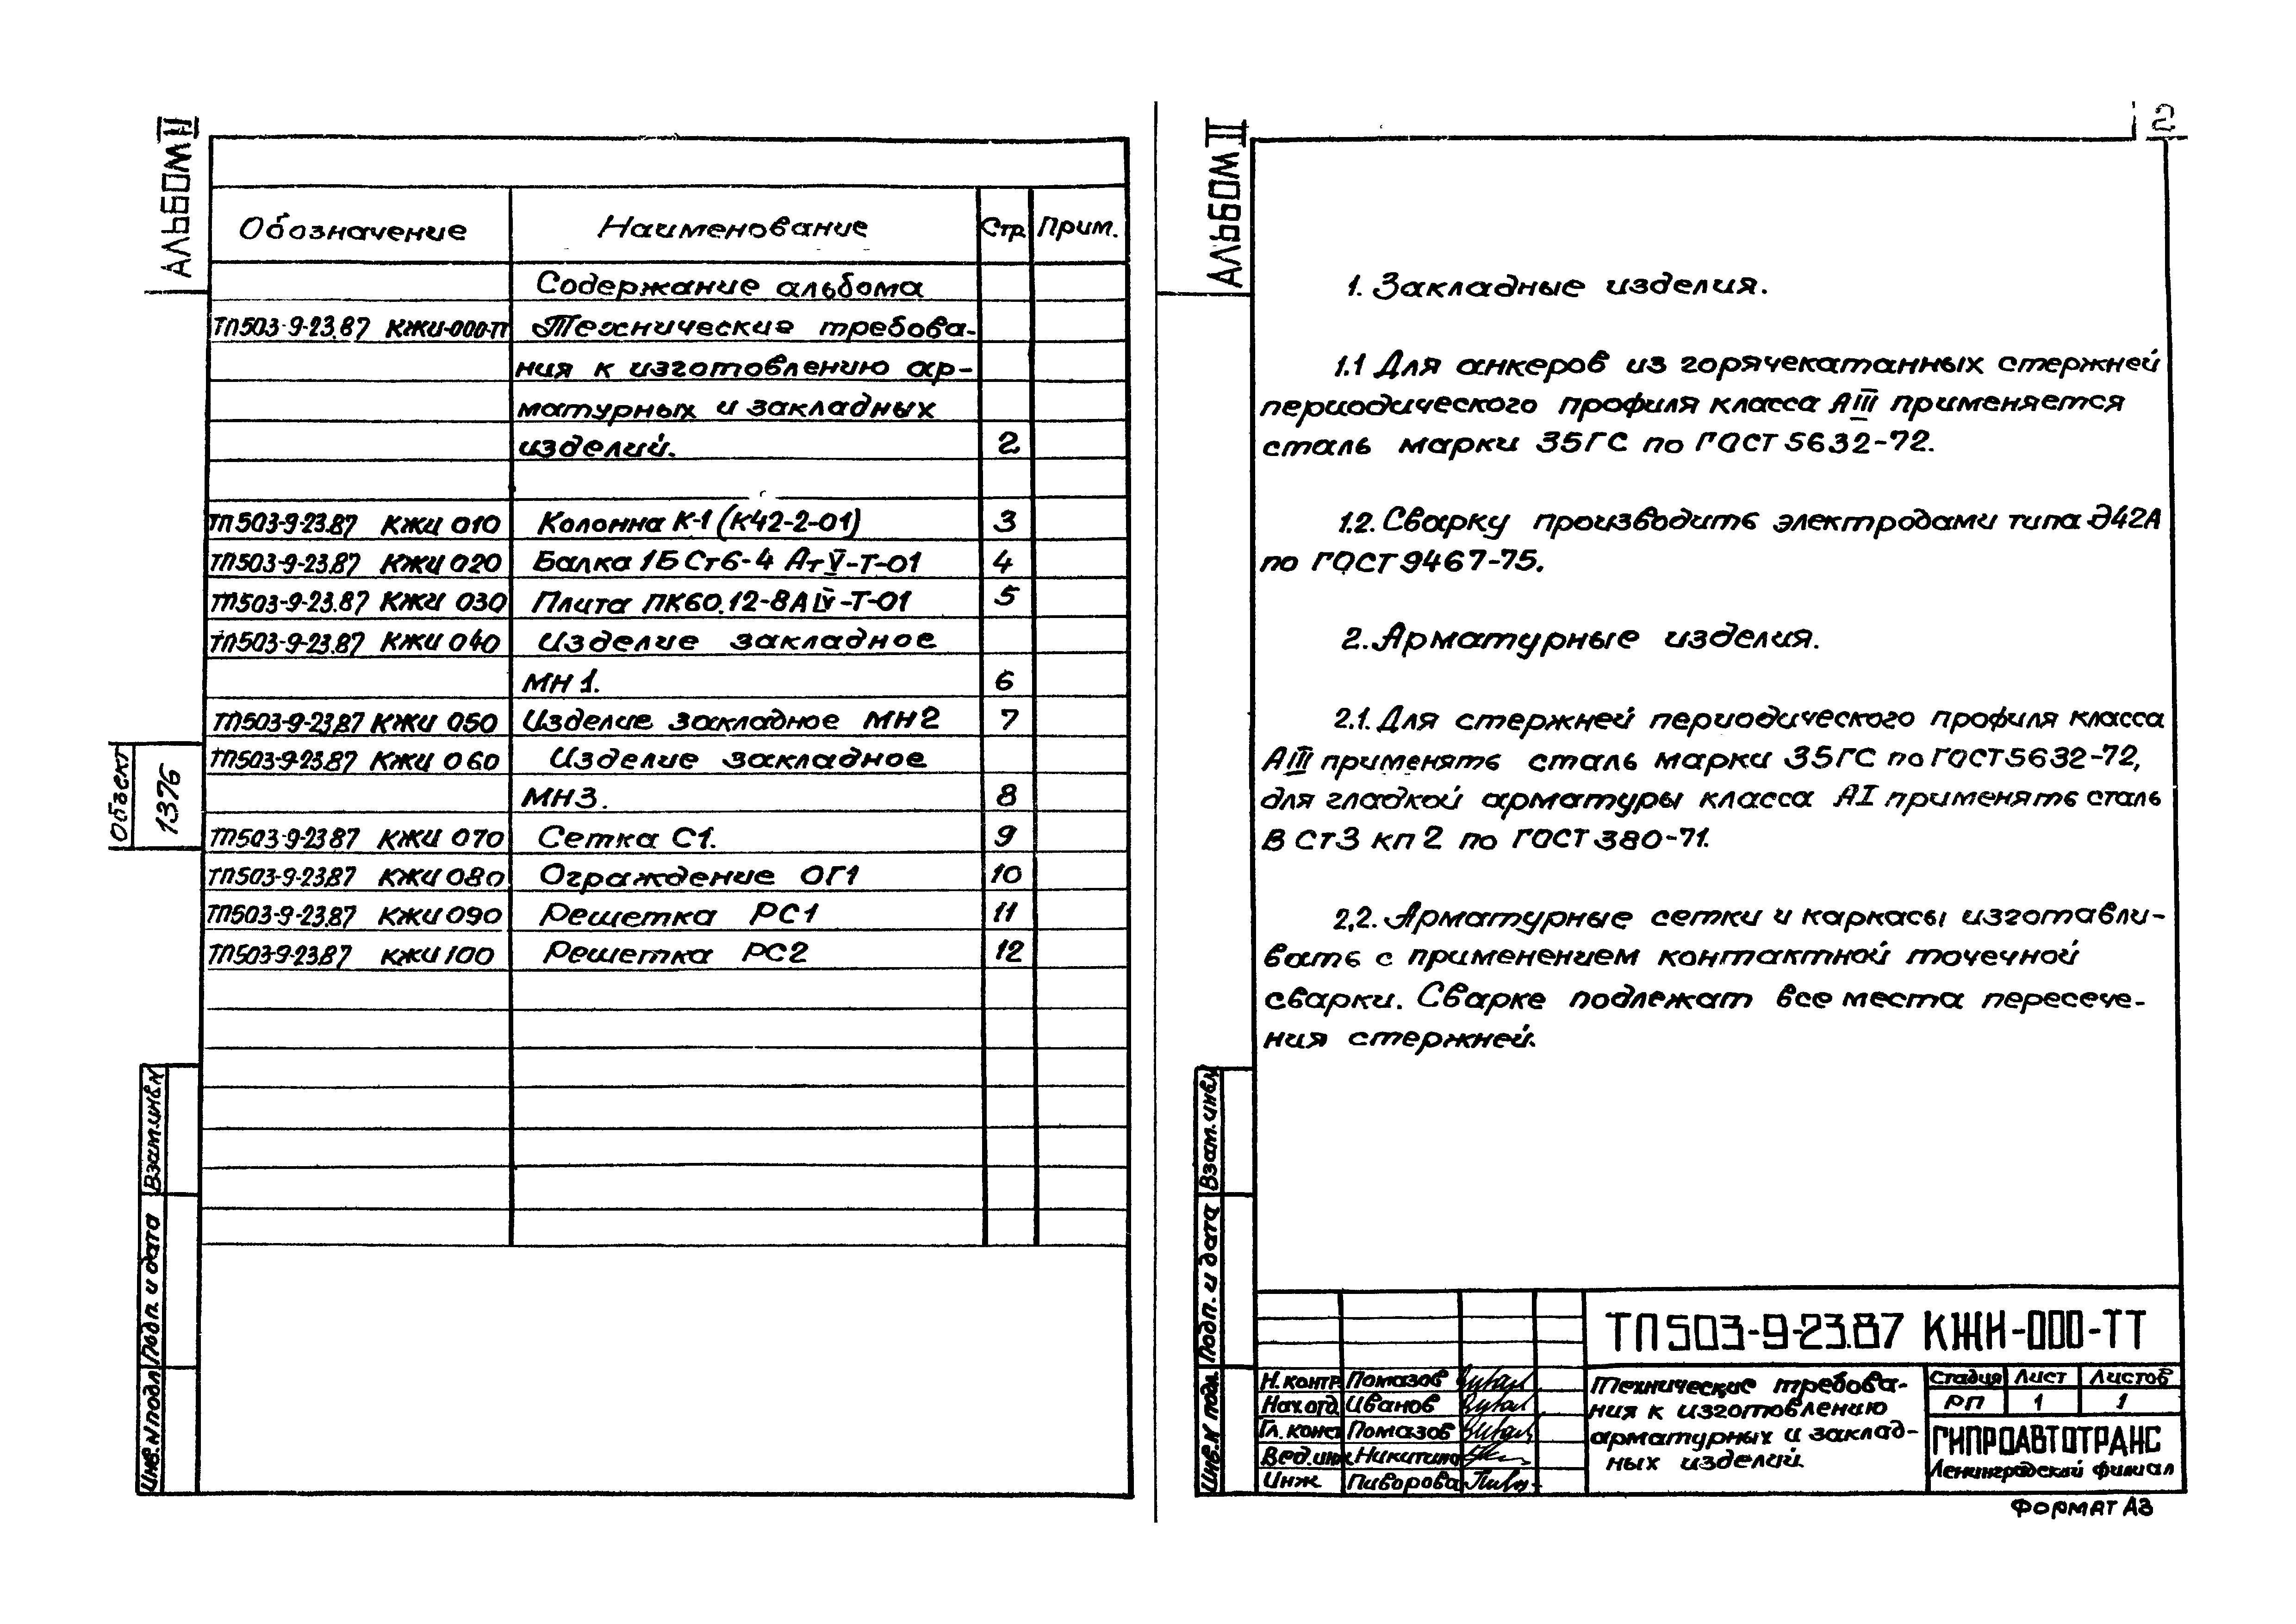 АЛЬБОМ III
Обозначение Наименование Стр. Прим.
Содержание альбома
ТП503-9-23.87 КЖИ-000-ТТ Технические требова-
ния к изготовлению ар-
матурных и закладных
изделий. 2
ТП503-9-23.87 КЖИ 010 Колонна К-1 (К42-2-01) 3
ТП503-9-23.87 КЖИ 020 Балка 1БСт6-4 АтV-Т-01 4
ТП503-9-23.87 КЖИ 030 Плита ПК60.12-8АIV-Т-01 5
ТП503-9-23.87 КЖИ 040 Изделие закладное
МН1. 6
ТП503-9-23.87 КЖИ 050 Изделие закладное МН2 7
ТП503-9-23.87 КЖИ 060 Изделие закладное
МН3. 8
ТП503-9-23.87 КЖИ 070 Сетка С1. 9
ТП503-9-23.87 КЖИ 080 Ограждение ОГ1 10
ТП503-9-23.87 КЖИ 090 Решетка РС1 11
ТП503-9-23.87 КЖИ 100 Решетка РС2 12
Объект
1376
Взам.инв.N
Подп. и дата
Инв.N подл.
2
АЛЬБОМ III
1. Закладные изделия.
1.1 Для анкеров из горячекатанных стержней
периодического профиля класса АIII применяется
сталь марки 35ГС по ГОСТ 5632-72.
1.2. Сварку производить электродами типа Э42А
по ГОСТ 9467-75.
2. Арматурные изделия.
2.1. Для стержней периодического профиля класса
АIII применять сталь марки 35ГС по ГОСТ 5632-72,
для гладкой арматуры класса АI применять сталь
В Ст3 кп 2 по ГОСТ 380-71.
2.2. Арматурные сетки и каркасы изготавли-
вать с применением контактной точечной
сварки. Сварке подлежат все места пересече-
ния стержней.
Взам.инв.N
Подп. и дата
Инв.N подл.
ТП503-9-23.87 КЖИ-000-ТТ
Н.контр Помазов
Нач.отд Иванов
Гл. конст Помазов
Вед.инж Никитина
Инж Пиворова
Технические требова-
ния к изготовлению
арматурных и заклад-
ных изделий.
Стадия Лист Листов
РП 1 1
ГИПРОАВТОТРАНС
Ленинградский филиал
ФОРМАТ А3